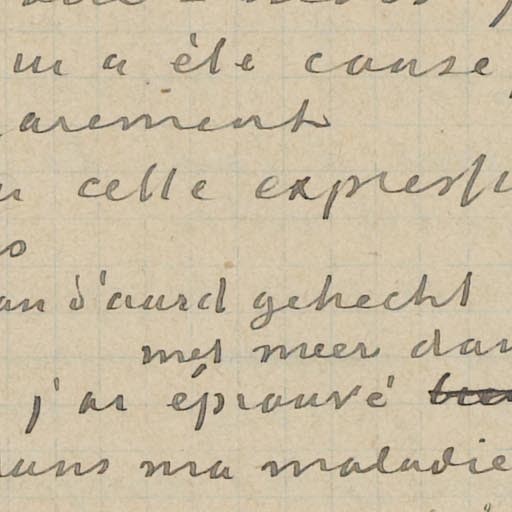 m'a été cause
arement
cette expressi
an d'aard gehecht
met meer dan
j'ai éprouvé
dans ma maladie